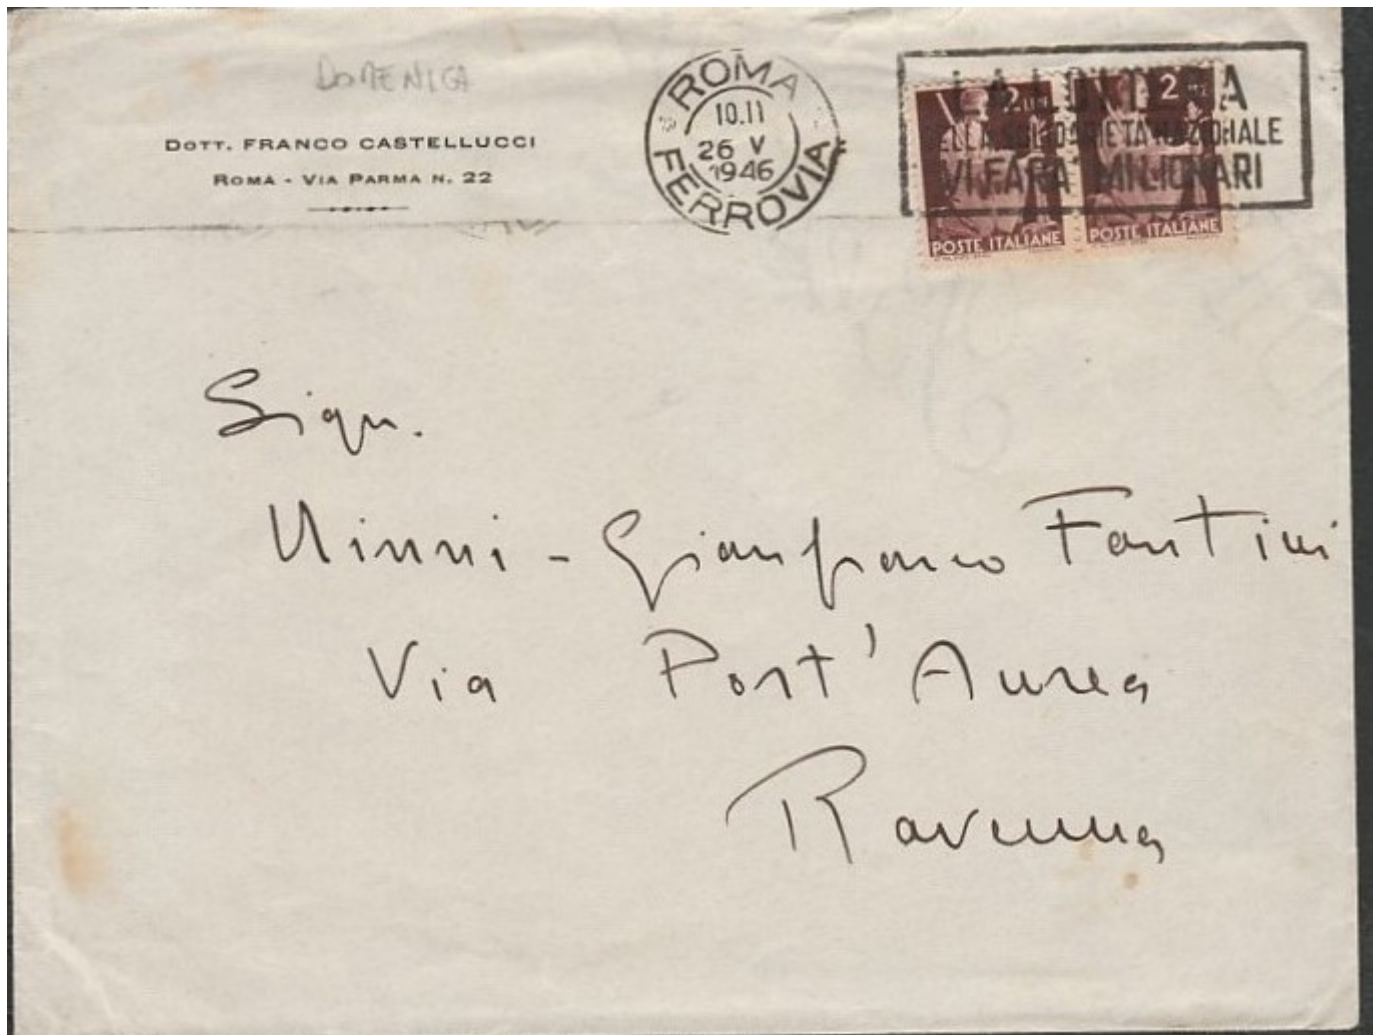 DOMENICA
DOTT. FRANCO CASTELLUCCI
ROMA - VIA PARMA N. 22
ROMA
10.11
26 V
1946
FERROVIA
LA LOTTERIA
DELLA SOLIDARIETA NAZIONALE
VI FARA' MILIONARI
2 LIRE
2
POSTE ITALIANE
POSTE ITALIANE
Sign.
Ninni - Gianfranco Fantini
Via Port' Aurea
Ravenna